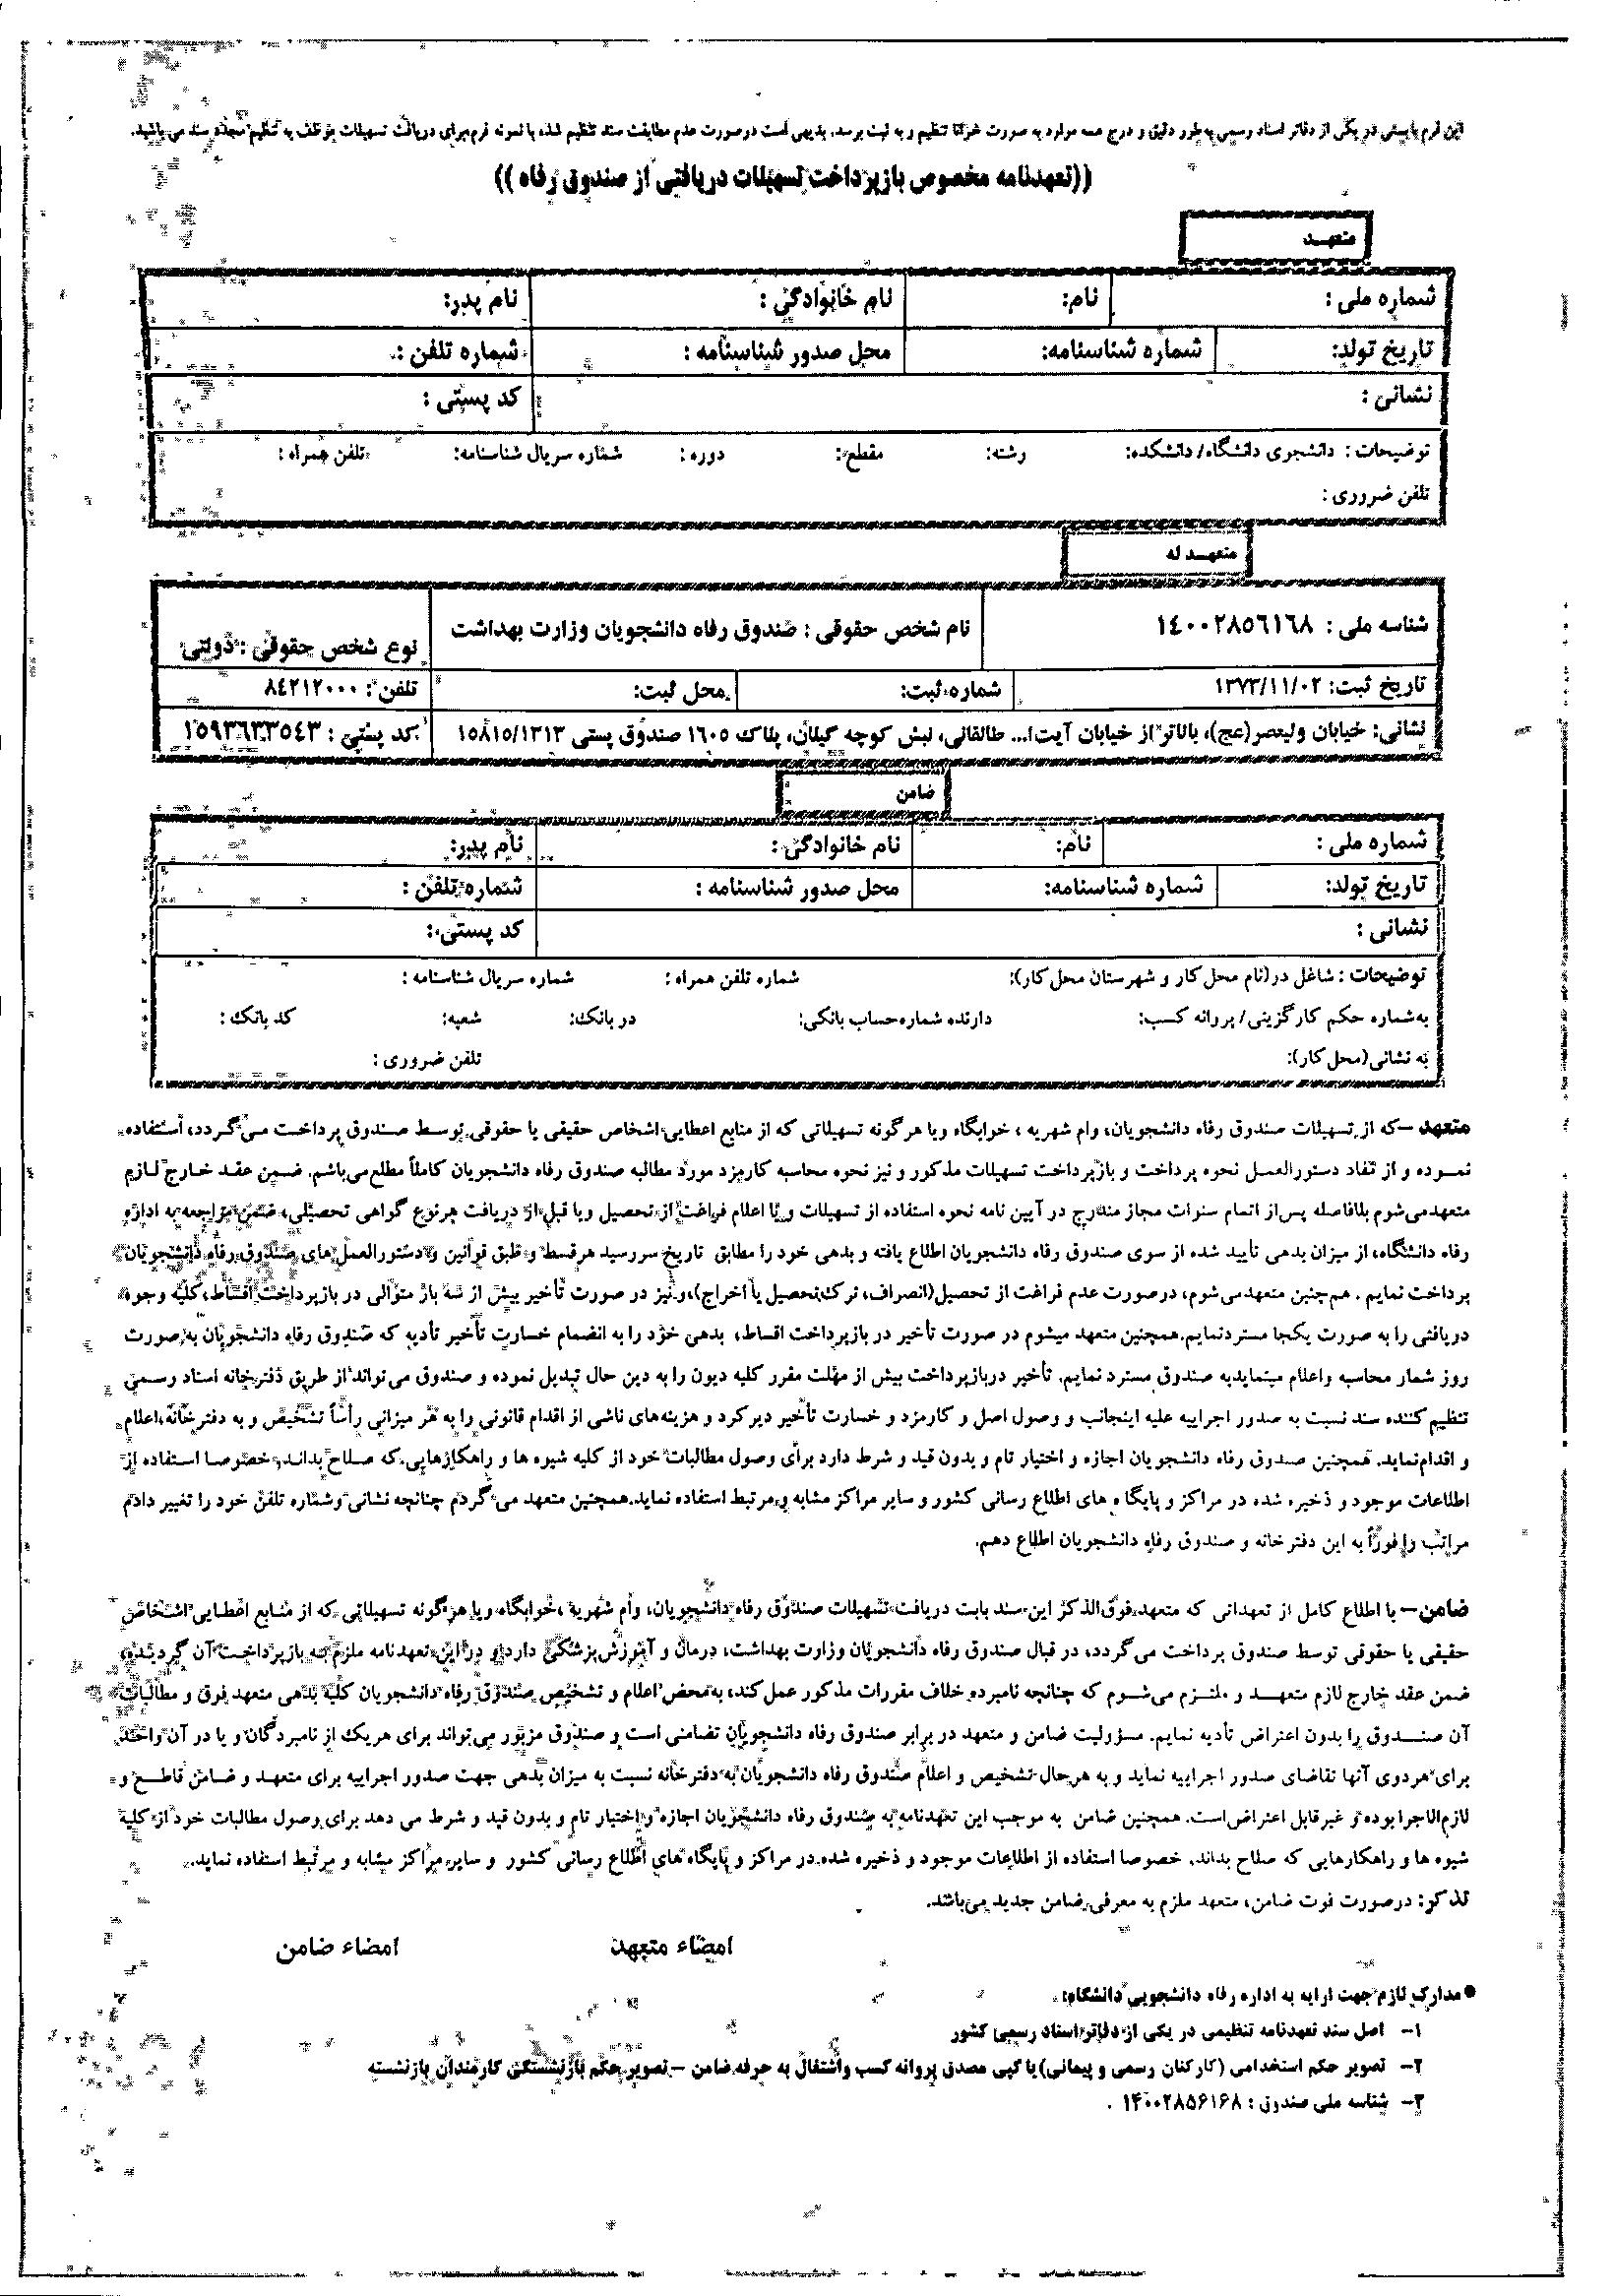 این فرم بایستی در یکی از دفاتر اسناد رسمی به طور دقیق و درج همه موارد به صورت تنظیم و به ثبت برسد. بدیهی است درصورت عدم مطابقت سند تنظیم شده با نمونه فرم برای دریافت تسهیلات موظف به تنظیم مجدد سند می باشید.
((تعهدنامه مخصوص بازپرداخت تسهیلات دریافتی از صندوق رفاه ))
متعهــد
شماره ملی : نام: نام خانوادگی : نام پدر:
تاریخ تولد: شماره شناسنامه: محل صدور شناسنامه : شماره تلفن :
نشانی : کد پستی :
توضیحات : دانشجوی دانشگاه/ دانشکده: رشته: مقطع: دوره : شماره سریال شناسنامه: تلفن همراه :
تلفن ضروری :
متعهــد له
شناسه ملی : ۱٤۰۰۲۸۵٦۱٦۸ نام شخص حقوقی : صندوق رفاه دانشجویان وزارت بهداشت نوع شخص حقوقی : دولتی
تاریخ ثبت: ۱۳۷۳/۱۱/۰۲ شماره ثبت: محل ثبت: تلفن : ۸٤۲۱۲۰۰۰
نشانی: خیابان ولیعصر(عج)، بالاتر از خیابان آیت ا... طالقانی، نبش کوچه گیلان، پلاک ۱٦۰۵ صندوق پستی ۱۵۸۱۵/۱۳۱۳ کد پستی : ۱۵۹۳٦۳۳۵٤۳
ضامن
شماره ملی : نام: نام خانوادگی : نام پدر:
تاریخ تولد: شماره شناسنامه: محل صدور شناسنامه : شماره تلفن :
نشانی : کد پستی :
توضیحات : شاغل در(نام محل کار و شهرستان محل کار): شماره تلفن همراه : شماره سریال شناسنامه :
به شماره حکم کارگزینی/ پروانه کسب: دارنده شماره حساب بانکی: در بانک: شعبه: کد بانک :
به نشانی(محل کار): تلفن ضروری :
متعهد –که از تسهیلات صندوق رفاه دانشجویان، وام شهریه ، خوابگاه ویا هرگونه تسهیلاتی که از منابع اعطایی اشخاص حقیقی یا حقوقی توسط صندوق پرداخت می گردد، استفاده
نمـوده و از مفاد دستورالعمل نحوه پرداخت و بازپرداخت تسهیلات مذکور و نیز نحوه محاسبه کارمزد مورد مطالبه صندوق رفاه دانشجویان کاملاً مطلع می‌باشم. ضمن عقد خارج لازم
متعهدمی‌شوم بلافاصله پس از اتمام سنوات مجاز مندرج در آیین نامه نحوه استفاده از تسهیلات و یا اعلام فراغت از تحصیل ویا قبل از دریافت هرنوع گواهی تحصیلی، ضمن مراجعه به اداره
رفاه دانشگاه، از میزان بدهی تأیید شده از سوی صندوق رفاه دانشجویان اطلاع یافته و بدهی خود را مطابق تاریخ سررسید هرقسط و طبق قوانین و دستورالعمل های صندوق رفاه دانشجویان
پرداخت نمایم . همچنین متعهدمی‌شوم، درصورت عدم فراغت از تحصیل(انصراف، ترک تحصیل یا اخراج)، و نیز در صورت تأخیر بیش از سه بار متوالی در بازپرداخت اقساط، کلیه وجوه
دریافتی را به صورت یکجا مستردنمایم.همچنین متعهد میشوم در صورت تأخیر در بازپرداخت اقساط، بدهی خود را به انضمام خسارت تأخیر تأدیه که صندوق رفاه دانشجویان به صورت
روز شمار محاسبه واعلام مینمایدبه صندوق مسترد نمایم. تأخیر دربازپرداخت بیش از مهلت مقرر کلیه دیون را به دین حال تبدیل نموده و صندوق می تواند از طریق دفترخانه اسناد رسمی
تنظیم کننده سند نسبت به صدور اجراییه علیه اینجانب و وصول اصل و کارمزد و خسارت تأخیر دیرکرد و هزینه‌های ناشی از اقدام قانونی را به هر میزانی رأساً تشخیص و به دفترخانه اعلام
و اقدام نماید. همچنین صندوق رفاه دانشجویان اجازه و اختیار تام و بدون قید و شرط دارد برای وصول مطالبات خود از کلیه شیوه ها و راهکارهایی که صلاح بداند، خصوصا استفاده از
اطلاعات موجود و ذخیره شده در مراکز و پایگاه های اطلاع رسانی کشور و سایر مراکز مشابه و مرتبط استفاده نماید.همچنین متعهد می گردم چنانچه نشانی وشماره تلفن خود را تغییر دادم
مراتب را فوراً به این دفترخانه و صندوق رفاه دانشجویان اطلاع دهم.
ضامن– با اطلاع کامل از تعهداتی که متعهد فوق الذکر این سند بابت دریافت تسهیلات صندوق رفاه دانشجویان، وام شهریه ،خوابگاه ویا هرگونه تسهیلاتی که از منابع اعطایی اشخاص
حقیقی یا حقوقی توسط صندوق پرداخت می گردد، در قبال صندوق رفاه دانشجویان وزارت بهداشت، درمان و آموزش پزشکی دارد و در این تعهدنامه ملزم به بازپرداخت آن گردیده،
ضمن عقد خارج لازم متعهــد و ملتزم می‌شـوم که چنانچه نامبرده خلاف مقررات مذکور عمل کند، به محض اعلام و تشخیص صندوق رفاه دانشجویان کلیه بدهی متعهد فوق و مطالبات
آن صنــدوق را بدون اعتراض تأدیه نمایم. مسؤولیت ضامن و متعهد در برابر صندوق رفاه دانشجویان تضامنی است و صندوق مزبور می‌تواند برای هریک از نامبردگان و یا در آن واحد
برای هردوی آنها تقاضای صدور اجراییه نماید و به هرحال تشخیص و اعلام صندوق رفاه دانشجویان به دفترخانه نسبت به میزان بدهی جهت صدور اجراییه برای متعهد و ضامن قاطع و
لازم‌الاجرا بوده و غیرقابل اعتراض است. همچنین ضامن به موجب این تعهدنامه به صندوق رفاه دانشجویان اجازه و اختیار تام و بدون قید و شرط می دهد برای وصول مطالبات خود از کلیه
شیوه ها و راهکارهایی که صلاح بداند، خصوصا استفاده از اطلاعات موجود و ذخیره شده در مراکز و پایگاه های اطلاع رسانی کشور و سایر مراکز مشابه و مرتبط استفاده نماید.
تذکر: درصورت فوت ضامن، متعهد ملزم به معرفی ضامن جدید می‌باشد.
امضاء متعهد امضاء ضامن
● مدارک لازم جهت ارایه به اداره رفاه دانشجویی دانشگاه:
۱– اصل سند تعهدنامه تنظیمی در یکی از دفاتر اسناد رسمی کشور
۲– تصویر حکم استخدامی (کارکنان رسمی و پیمانی)یا کپی مصدق پروانه کسب واشتغال به حرفه ضامن –تصویر حکم بازنشستگی کارمندان بازنشسته
۳– شناسه ملی صندوق : ۱۴۰۰۲۸۵۶۱۶۸ .